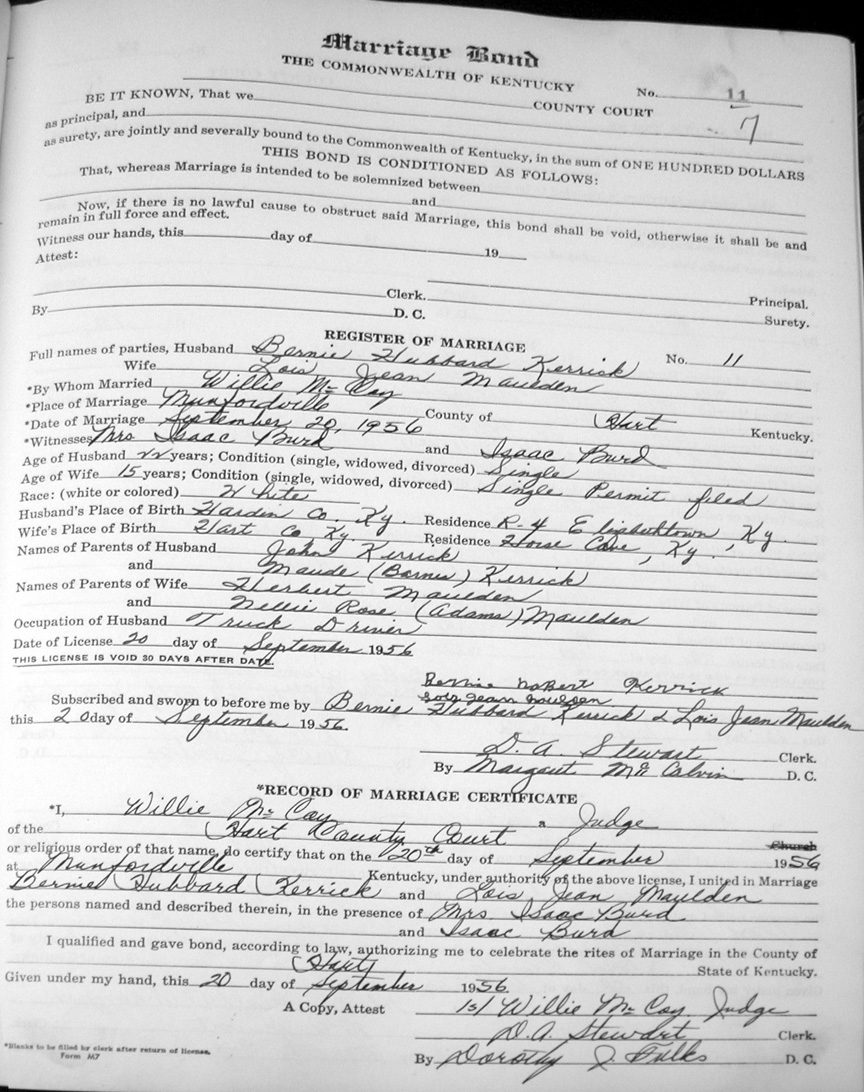 Marriage Bond
THE COMMONWEALTH OF KENTUCKY
No. 11
BE IT KNOWN, That we COUNTY COURT
7
as principal, and
as surety, are jointly and severally bound to the Commonwealth of Kentucky, in the sum of ONE HUNDRED DOLLARS
THIS BOND IS CONDITIONED AS FOLLOWS:
That, whereas Marriage is intended to be solemnized between
and
Now, if there is no lawful cause to obstruct said Marriage, this bond shall be void, otherwise it shall be and
remain in full force and effect.
Witness our hands, this day of 19
Attest:
Clerk. Principal.
By D. C. Surety.
REGISTER OF MARRIAGE
Full names of parties, Husband Bernie Hubbard Kerrick No. 11
Wife Lois Jean Maulden
*By Whom Married Willie McCoy
*Place of Marriage Munfordville County of Hart Kentucky.
*Date of Marriage September 20, 1956
*Witnesses Mrs Isaac Burd and Isaac Burd
Age of Husband 22 years; Condition (single, widowed, divorced) Single
Age of Wife 15 years; Condition (single, widowed, divorced) Single Permit filed
Race: (white or colored) White
Husband's Place of Birth Hardin Co Ky. Residence R-4 Elizabethtown, Ky.
Wife's Place of Birth Hart Co Ky. Residence Horse Cave, Ky.
Names of Parents of Husband John Kerrick
and Maude (Barnes) Kerrick
Names of Parents of Wife Herbert Maulden
and Nellie Rose (Adams) Maulden
Occupation of Husband Truck Driver
Date of License 20 day of September 1956
THIS LICENSE IS VOID 30 DAYS AFTER DATE.
Bernie Kerrick
Lois Jean Maulden
Subscribed and sworn to before me by Bernie Hubbard Kerrick & Lois Jean Maulden
this 20 day of September 1956.
D. A. Stewart Clerk.
By Margaret D. C.
*RECORD OF MARRIAGE CERTIFICATE
*I, Willie McCoy a Judge
of the Hart County Court Church
or religious order of that name, do certify that on the 20th day of September 1956
at Munfordville Kentucky, under authority of the above license, I united in Marriage
Bernie Hubbard Kerrick and Lois Jean Maulden
the persons named and described therein, in the presence of Mrs Isaac Burd
and Isaac Burd
I qualified and gave bond, according to law, authorizing me to celebrate the rites of Marriage in the County of
Hart State of Kentucky.
Given under my hand, this 20 day of September 1956.
A Copy, Attest /s/ Willie McCoy Judge
D.A. Stewart Clerk.
*Blanks to be filled by clerk after return of license.
Form M7
By Dorothy J. Fulks D. C.